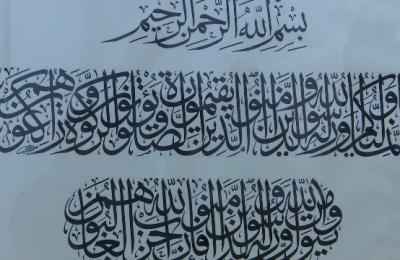 بِسْمِ اللهِ الرَّحْمٰنِ الرَّحِيمِ
إِنَّمَا وَلِيُّكُمُ اللهُ وَرَسُولُهُ وَالَّذِينَ آمَنُوا الَّذِينَ يُقِيمُونَ الصَّلَاةَ وَيُؤْتُونَ الزَّكَاةَ وَهُمْ رَاكِعُونَ
وَمَنْ يَتَوَلَّ اللهَ وَرَسُولَهُ وَالَّذِينَ آمَنُوا فَإِنَّ حِزْبَ اللهِ هُمُ الْغَالِبُونَ